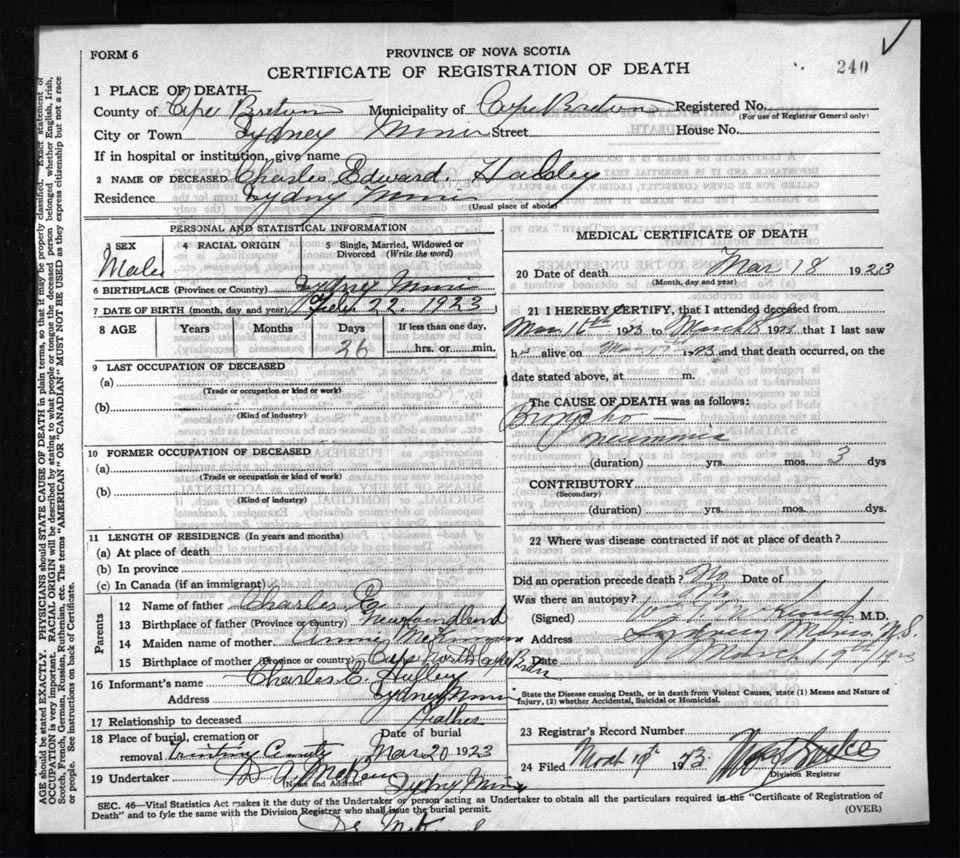 FORM 6
PROVINCE OF NOVA SCOTIA
CERTIFICATE OF REGISTRATION OF DEATH
240
1 PLACE OF DEATH—
County of Cape Breton Municipality of Cape Breton Registered No.
(For use of Registrar General only)
City or Town Sydney Mines Street House No.
If in hospital or institution, give name
2 NAME OF DECEASED Charles Edward
Residence Sydney Mines
(Usual place of abode)
PERSONAL AND STATISTICAL INFORMATION
3 SEX 4 RACIAL ORIGIN 5 Single, Married, Widowed or Divorced (Write the word)
Male
6 BIRTHPLACE (Province or Country) Sydney Mines
7 DATE OF BIRTH (month, day, and year) Feby 22. 1923
8 AGE Years Months Days If less than one day,
26 hrs. or min.
9 LAST OCCUPATION OF DECEASED
(a)
(Trade or occupation or kind of work)
(b)
(Kind of industry)
10 FORMER OCCUPATION OF DECEASED
(a)
(Trade or occupation or kind of work)
(b)
(Kind of industry)
11 LENGTH OF RESIDENCE (In years and months)
(a) At place of death
(b) In province
(c) In Canada (if an immigrant)
Parents
12 Name of father Charles E
13 Birthplace of father (Province or Country) Newfoundland
14 Maiden name of mother Annie
15 Birthplace of mother (Province or Country) Cape North Cape Breton
16 Informant's name Charles E.
Address Sydney Mines
17 Relationship to deceased Father
18 Place of burial, cremation or removal Date of burial
Trinity Mar 20 1923
19 Undertaker
(Name and Address) Sydney Mines
MEDICAL CERTIFICATE OF DEATH
20 Date of death Mar 18 1923
(Month, day and year)
21 I HEREBY CERTIFY, that I attended deceased from
Mar 16th 1923 to March 18 1923 that I last saw
h alive on 1923 and that death occurred, on the
date stated above, at m.
The CAUSE OF DEATH was as follows:
Broncho-
pneumonia
(duration) yrs. mos. 3 dys
CONTRIBUTORY
(Secondary)
(duration) yrs. mos. dys.
22 Where was disease contracted if not at place of death?
Did an operation precede death? No Date of
Was there an autopsy? No
(Signed) M.D.
Address Sydney Mines N.S.
Date March 19th
State the Disease causing Death, or in death from Violent Causes, state (1) Means and Nature of
Injury, (2) whether Accidental, Suicidal or Homicidal.
23 Registrar's Record Number
24 Filed 19th
Division Registrar
SEC. 46—Vital Statistics Act makes it the duty of the Undertaker or person acting as Undertaker to obtain all the particulars required in the "Certificate of Registration of
Death" and to fyle the same with the Division Registrar who shall issue the burial permit. (OVER)
AGE should be stated EXACTLY. PHYSICIANS should STATE CAUSE OF DEATH in plain terms, so that it may be properly classified. Exact statement of
OCCUPATION is very important. RACIAL ORIGIN will be described by stating to what people or tongue the deceased person belonged whether English, Irish,
Scotch, French, German, Russian, Ruthenian, etc. The terms "AMERICAN" OR "CANADIAN" MUST NOT BE USED as they express citizenship but not a race
or people. See instructions on back of Certificate.